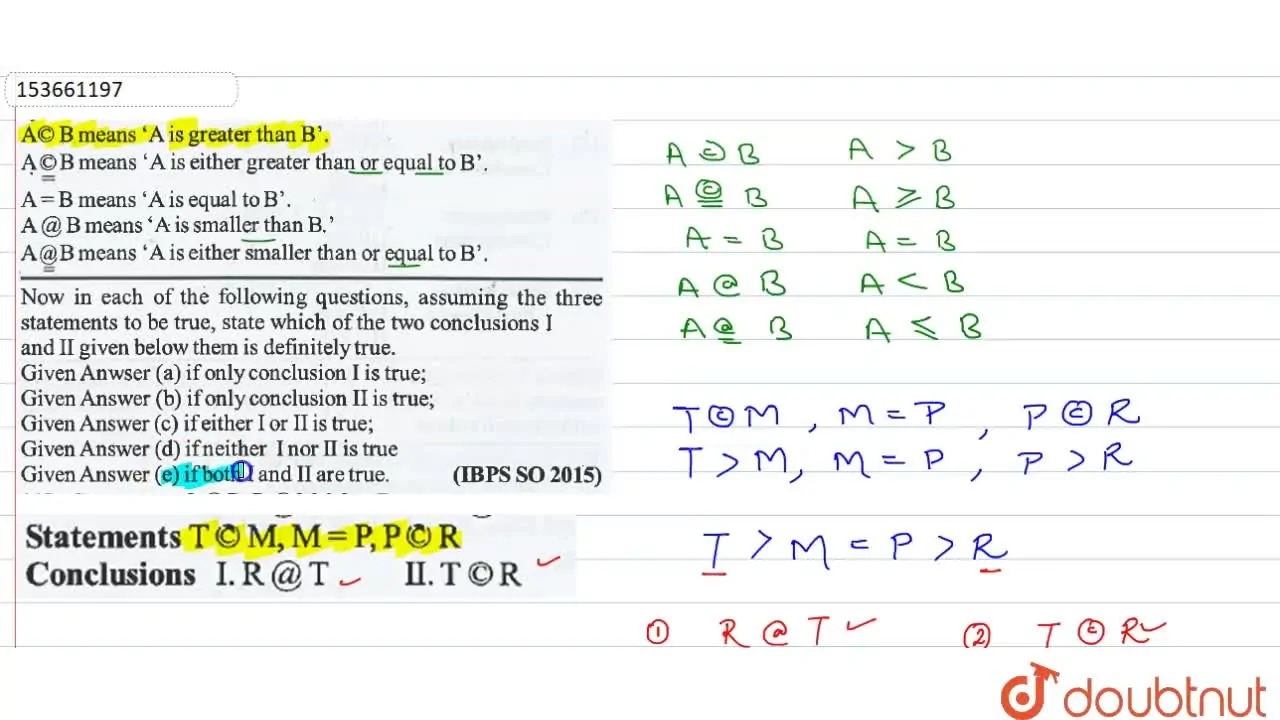 153661197
A © B means ‘A is greater than B’.
A © B means ‘A is either greater than or equal to B’.
A = B means ‘A is equal to B’.
A @ B means ‘A is smaller than B.’
A @ B means ‘A is either smaller than or equal to B’.
Now in each of the following questions, assuming the three
statements to be true, state which of the two conclusions I
and II given below them is definitely true.
Given Anwser (a) if only conclusion I is true;
Given Answer (b) if only conclusion II is true;
Given Answer (c) if either I or II is true;
Given Answer (d) if neither I nor II is true
Given Answer (e) if both I and II are true. (IBPS SO 2015)
Statements T © M, M = P, P © R
Conclusions I. R @ T ✓ II. T © R ✓
A © B A > B
A © B A ⩾ B
A = B A = B
A @ B A < B
A @ B A ⩽ B
T © M , M = P , P © R
T > M, M = P , P > R
T > M = P > R
① R @ T ✓ ② T © R ✓
doubtnut